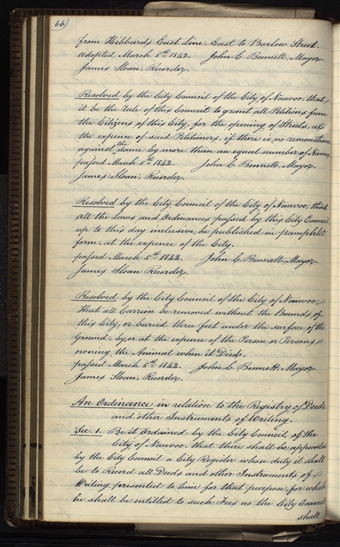 66)
from Hibbards East Line, East to Barlow Street.
adopted March 5th 1842. John C. Bennett, Mayor.
James Sloan, Recorder.
Resolved by the City Council of the City of Nauvoo, that,
it be the rule of this Council to grant all Petitions from
the Citizens of this City, for the opening of Streets, at
the expence of said Petitioners, if there is no remonstrance
against the same by more than an equal number of Names.
passed March 5th 1842. John C. Bennett, Mayor.
James Sloan, Recorder.
Resolved by the City Council of the City of Nauvoo, that
all the Laws and Ordinances passed by this City Council
up to this day inclusive, be published in pamphlet
form, at the expence of the City.
passed March 5th 1842. John C. Bennett, Mayor.
James Sloan, Recorder.
Resolved by the City Council of the City of Nauvoo,
that all Carrion be removed without the Bounds of
this City, or buried three feet under the surface of the
Ground, by, or at the expence of the Person or Persons
owning the Animal when it Died.
passed March 5th 1842. John C. Bennett, Mayor
James Sloan, Recorder.
An Ordinance in relation to the Registry of Deeds
and other Instruments of Writing.
Sec 1. Be it Ordained by the City Council of the
City of Nauvoo, that there shall be appointed
by the City Council a City Register whose duty it shall
be to Record all Deeds and other Instruments of
Writing presented to him for that purpose, for which
he shall be entitled to such Fees as the City Council
shall